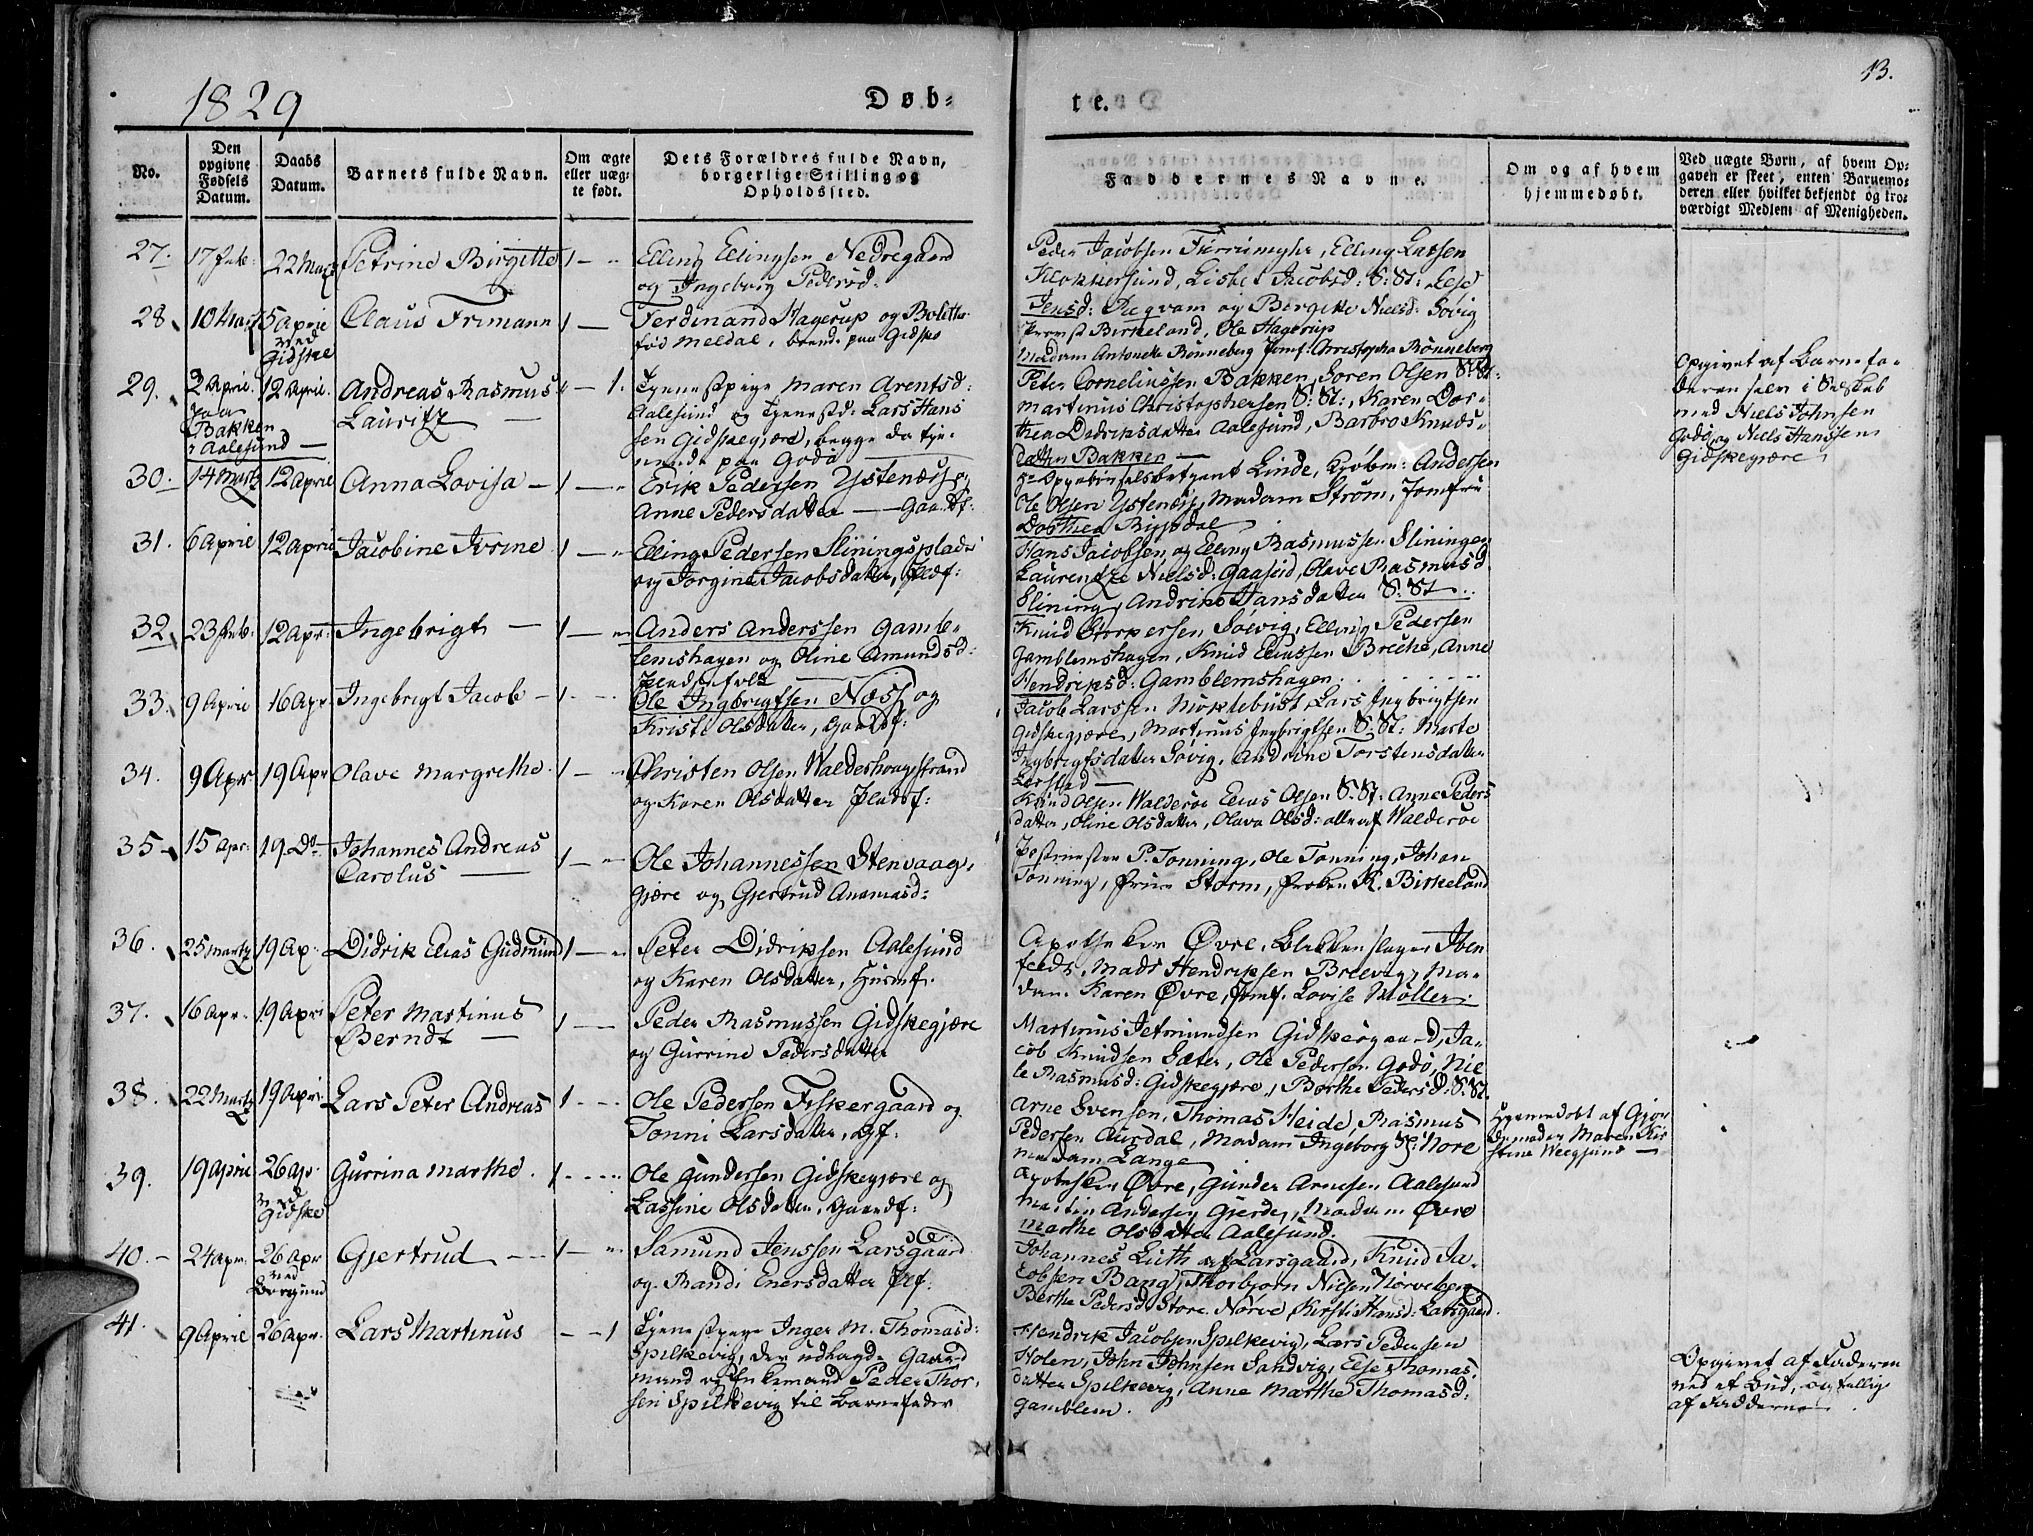 1829
Døb-
te.
13.
No.
Den
opgivne
Fødsels
Datum.
Daabs
Datum.
Barnets fulde Navn.
Om ægte
eller uæg-
te født.
Dets Forældres fulde Navn,
borgerlige Stilling og
Opholdssted.
Faddernes Navne.
Om og af hvem
hjemmedøbt.
Ved uægte Børn, af hvem Op-
gaven er skeet, enten Barnemo-
deren eller hvilket bekjendt og tro-
værdigt Medlem af Menigheden.
27.
17 Feb:
22 Martz
Petrine Birgitte
1 — "
Elling Ellingsen Nedregaard
og Ingeborg Pedersd.
Peder Jacobsen Furrimyhr, Elling Larsen
Klokkersund, Lisbet Jacobsd: S: St: Else
Jensd: og Birgitte Nielsd: Sövig
28.
10 Martz
5 April
ved
Gidske
Claus Frimann
1 —
Ferdinand Hagerup og Bolette
fød Meldal, boende paa Gidske
Provst Birkeland, Ole Hagerup
Madam Antonette Rönneberg Jomf: Christopha Rönneberg
29.
3 April
paa
Bakken
i Aalesund —
12 April.
Andreas Rasmus
Lauritz —
" — 1.
Tjenestpige Maren Arentsd:
Aalesund og Tjenestd: Lars Hans
sen Gidskegjære, begge da tje-
nende paa Godö
Peter Corneliussen Bakken, Soren Olsen S: St:
Martinus Christophersen S: St:, Karen Dor-
thea Didriksdatter Aalesund, Barbro Knuds-
datter Bakken —
Opgivet af Barnefa-
deren selv i Selskab
med Niels Johnsen
Godö, og Niels Hanssen
Gidskegjære
30.
14 Martz
12 April
Anna Lovisa —
1 — "
Erik Pedersen Ystenæs og
Anne Pedersdatter — Gaardf:
Linde, Kjöbm: Andersen
Ole Olsen Ystenæs, Madam Ström, Jomfru
Dorthea
31.
6 April
12 April
Jacobine Ivrine
1 — "
Elling Pedersen Sliningsplads
og Jorgine Jacobsdatter, Pladsf:
Hans Jacobsen og Elling Rasmussen Slininger
Laurendze Nielsd: Gaaseid, Olave Rasmusd
Slining, Andrine Hansdatter S: St
32.
23 Feb.
12 Apr:
Ingebrigt —
1 — "
Anders Anderssen Gamb-
lemshagen og Oline Amundsd:
Pladsfolk
Knud Torpersen Solvig, Elling Pedersen
Gamblemshagen, Knud Eliassen Breche, Anne
Hendriksd: Gamblemshagen
33.
9 April
16 Apr
Ingebrigt Jacob —
1. —
Ole Ingbrigtsen Næss og
Kristi Olsdatter, Gaardf:
Jacob Larssen Möklebust Lars Ingbrigtsen
Gidskegjære, Martinus Ingbrigtsen S: St: Marte
Ingbrigtsdatter Sövig, Andrine Torstensdatter
Lerstad —
34.
9 Apr
19 Apr
Olave Margrethe.
1 — "
Christen Olsen Walderhougstrand
og Karen Olsdatter Pladsf:
Knud Olsen Walderöe Elias Olsen S: St: Anne Peders
datter, Oline Olsdatter, Olava Olsd: alle af Walderöe
35 —
15 Apr:
19 Do
Johannes Andreas
Carolus —
1 — "
Ole Johannessen Stenvaag-
gjære og Gjertrud Ananiasd:
Postmester P. Tonning, Ole Tonning, Johan
Tonning, Frue Storm, Froken K. Birkeland
36.
25 Martz
19 Ap.
Didrik Elias Gudmund
1 — "
Peter Didriksen Aalesund
og Karen Olsdatter, Huusmf.
Apotheker Øvre, Blikkenslager Iben
feldt, Mads Hendriksen Breevig, Ma-
dam Karen Øvre, Jomf. Lovise Möller.
37.
16 Apr.
19 Apri
Peter Martinus
Berndt —
1 —
Peder Rasmussen Gidskegjære
og Gurrine Pedersdatter
Martinus Jetmundsen Gidskegaard, Ja-
cob Knudsen Sæter, Ole Pedersen Godö, Nic
le Rasmusd: Gidskegjære, Berthe Pedersd. S. St.
38.
22 Martz
19 Apri
Lars Peter Andreas
1 —
Ole Pedersen Fiskergaard og
Tonni Larsdatter, Gf:
Arne Svensen, Thomas Heide, Rasmus
Pedersen Aurdal, Madam Ingeborg S: Nore
Madam Lange
Hjemmedöbt af Gjor
demoder Maren Kir
stine Weegsund —
39.
19 April
26 Ap
ved
Gidske
Gurrina Marthe.
1. —
Ole Gundersen Gidskegjære og
Lassine Olsdatter, Gaardf:
Apotheker Øvre, Gunder Arnesen Aalesund
Martin Andersen Gjerde, Madam Øvre
Marthe Olsdatter Aalesund.
40. —
24 Apr.
26 Apr
ved
Borgund
Gjertrud —
1 — "
Samund Jenssen Larsgaard
og Randi Enersdatter Plf:
Johannes Luth af Larsgaard, Knud Ja-
cobsen Bang, Thorbjorn Nielsen Nörveberg
Berthe Pedersd Store Nörve, Kirsti Hansd: Larsgaard.
41.
9 April
26 Apr.
Lars Martinus
— — 1
Tjenestpige Inger M. Thomasd:
Spilkevig, der udlagde Gaard
mand og Enkemand Peder Thor-
sen Spilkevig til Barnefader
Hendrik Jacobsen Spilkevig, Lars Pedersen
Holen, John Johnsen Sandvig, Else Thomas-
datter Spilkevig, Anne Marthe Thomasd:
Gamblem.
Opgivet af Faderen
ved et Bud, og tillige
af Fadderne —